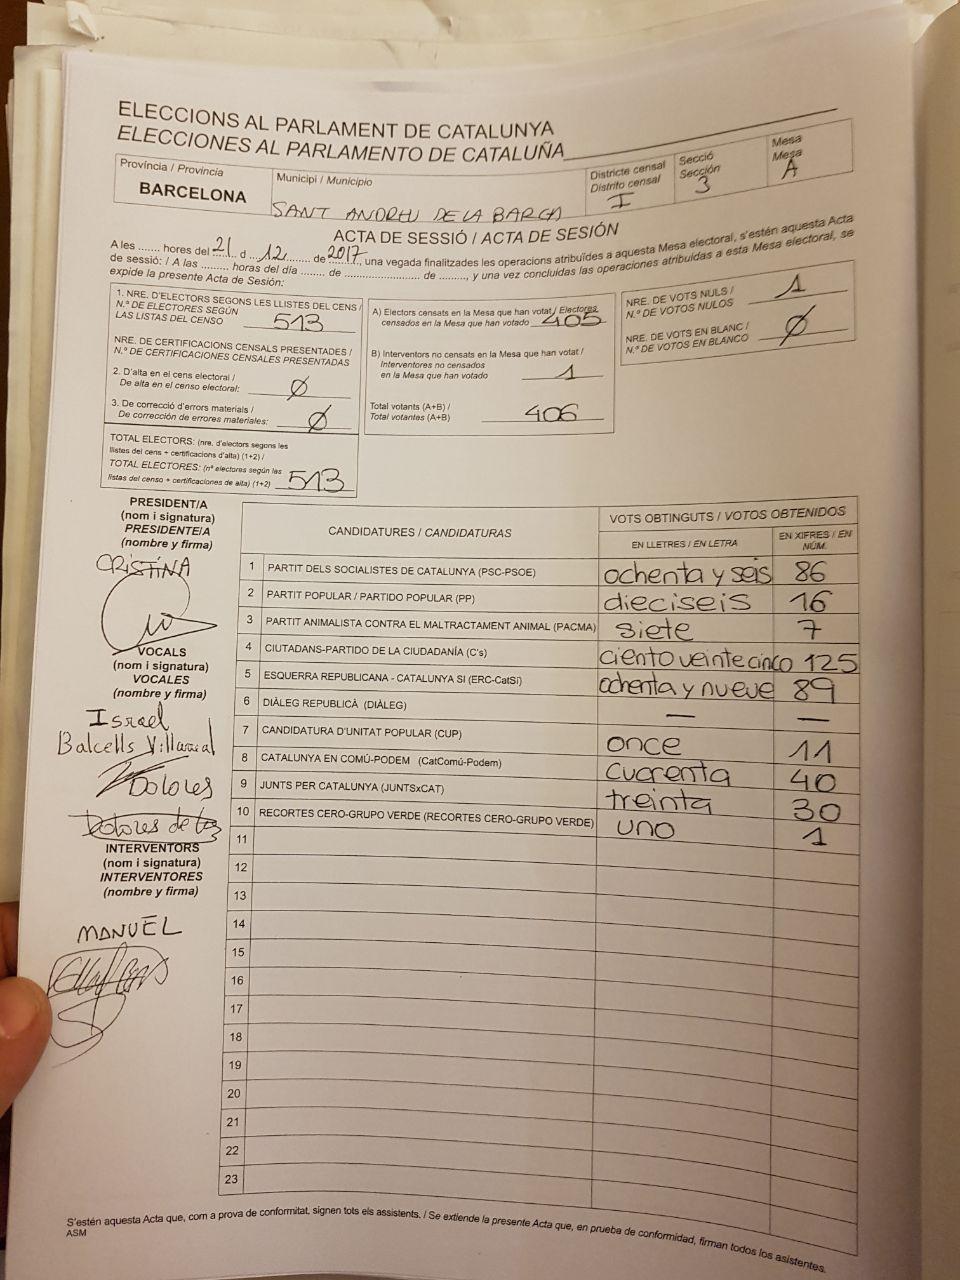 ELECCIONS AL PARLAMENT DE CATALUNYA
ELECCIONES AL PARLAMENTO DE CATALUÑA
Província / Provincia
BARCELONA
Municipi / Municipio
SANT ANDREU DE LA BARCA
Districte censal
Distrito censal
I
Secció
Sección
3
Mesa
Mesa
A
ACTA DE SESSIÓ / ACTA DE SESIÓN
A les ....... hores del 21 d 12 de 2017, una vegada finalitzades les operacions atribuïdes a aquesta Mesa electoral, s'estén aquesta Acta
de sessió: / A las ......... horas del día ....... de ..................... de ........, y una vez concluidas las operaciones atribuidas a esta Mesa electoral, se
expide la presente Acta de Sesión:
1. NRE. D'ELECTORS SEGONS LES LLISTES DEL CENS /
N.º DE ELECTORES SEGÚN
LAS LISTAS DEL CENSO 513
NRE. DE CERTIFICACIONS CENSALS PRESENTADES /
N.º DE CERTIFICACIONES CENSALES PRESENTADAS
2. D'alta en el cens electoral /
De alta en el censo electoral: Ø
3. De correcció d'errors materials /
De corrección de errores materiales: Ø
TOTAL ELECTORS: (nre. d'electors segons les
llistes del cens + certificacions d'alta) (1+2) /
TOTAL ELECTORES: (nº electores según las
listas del censo + certificaciones de alta) (1+2) 513
A) Electors censats en la Mesa que han votat / Electores
censados en la Mesa que han votado 405
B) Interventors no censats en la Mesa que han votat /
Interventores no censados
en la Mesa que han votado 1
Total votants (A+B) /
Total votantes (A+B) 406
NRE. DE VOTS NULS /
N.º DE VOTOS NULOS 1
NRE. DE VOTS EN BLANC /
N.º DE VOTOS EN BLANCO Ø
PRESIDENT/A
(nom i signatura)
PRESIDENTE/A
(nombre y firma)
CRISTINA
VOCALS
(nom i signatura)
VOCALES
(nombre y firma)
Israel
Balcells Villarreal
Dolores
Dolores de
INTERVENTORS
(nom i signatura)
INTERVENTORES
(nombre y firma)
MANUEL
CANDIDATURES / CANDIDATURAS
VOTS OBTINGUTS / VOTOS OBTENIDOS
EN LLETRES / EN LETRA
EN XIFRES / EN
NÚM.
1 PARTIT DELS SOCIALISTES DE CATALUNYA (PSC-PSOE) ochenta y seis 86
2 PARTIT POPULAR / PARTIDO POPULAR (PP) dieciseis 16
3 PARTIT ANIMALISTA CONTRA EL MALTRACTAMENT ANIMAL (PACMA) siete 7
4 CIUTADANS-PARTIDO DE LA CIUDADANÍA (C's) ciento veinte cinco 125
5 ESQUERRA REPUBLICANA - CATALUNYA SI (ERC-CatSí) ochenta y nueve 89
6 DIÀLEG REPUBLICÀ (DIÀLEG) — —
7 CANDIDATURA D'UNITAT POPULAR (CUP) once 11
8 CATALUNYA EN COMÚ-PODEM (CatComú-Podem) cuarenta 40
9 JUNTS PER CATALUNYA (JUNTSxCAT) treinta 30
10 RECORTES CERO-GRUPO VERDE (RECORTES CERO-GRUPO VERDE) uno 1
11
12
13
14
15
16
17
18
19
20
21
22
23
S'estén aquesta Acta que, com a prova de conformitat, signen tots els assistents. / Se extiende la presente Acta que, en prueba de conformidad, firman todos los asistentes.
ASM